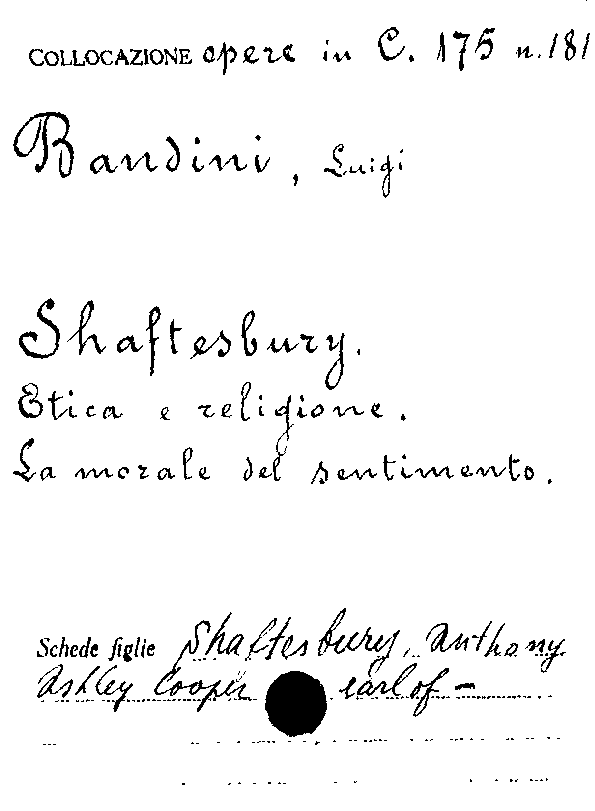 COLLOCAZIONE opere in C. 175 n. 181
Bandini, Luigi
Shaftesbury.
Etica e religione.
La morale del sentimento.
Schede figlie Shaftesbury, Anthony
Ashley Cooper earl of –